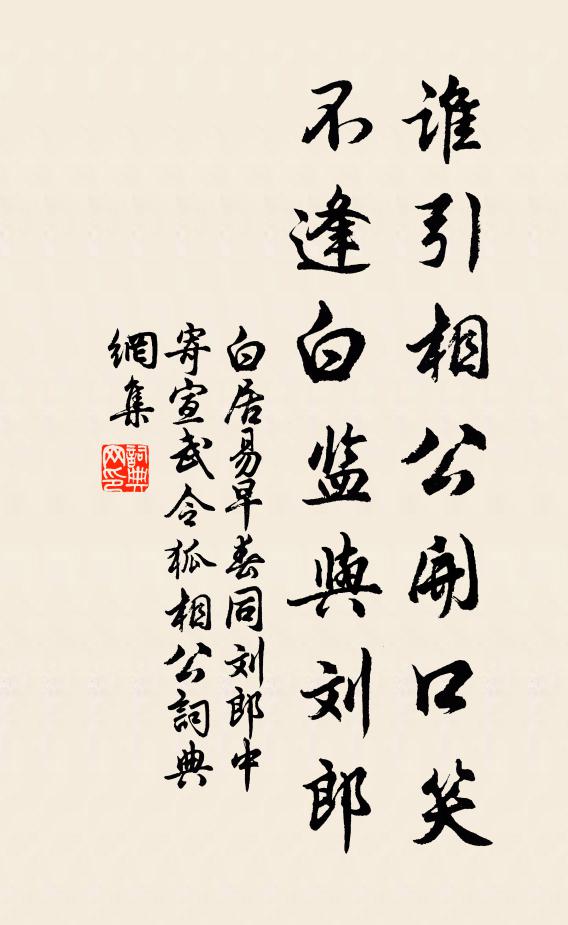 誰引相公開口笑
不逢白监與刘郎
白居易早春同刘郎中
寄宣武令狐相公詞典
網集
詞典
网印